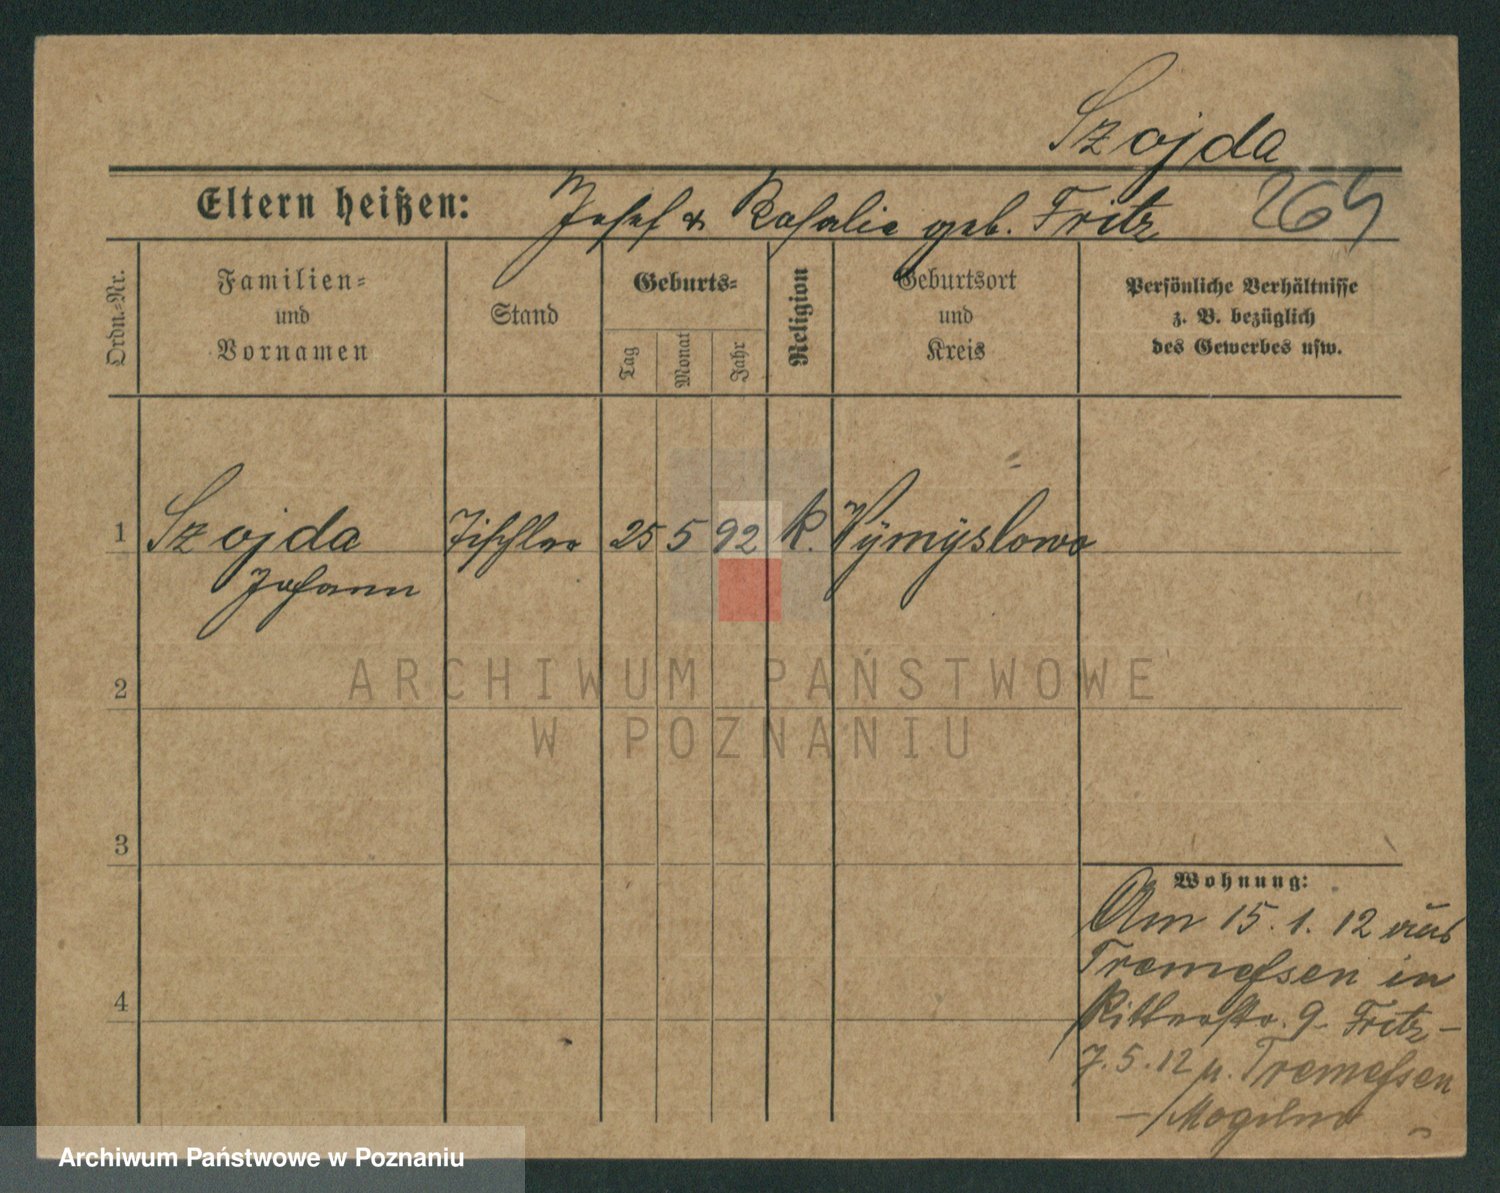 Szojda
Eltern heißen: Josef & Rosalie geb. Fritz 264
Ordn.-Nr.
Familien- und Vornamen
Stand
Geburts-
Tag
Monat
Jahr
Religion
Geburtsort und Kreis
Persönliche Verhältnisse
z. B. bezüglich
des Gewerbes usw.
1 Szojda Tischler 25 5 92 K. Wÿmÿslowo
Johann
2
3
4
Wohnung:
Am 15. 1. 12 aus
Tremessen in
Ritterstr. 9 Fritz –
7. 5. 12 n. Tremessen
– Mogilno –
ARCHIWUM PAŃSTWOWE
W POZNANIU
Archiwum Państwowe w Poznaniu